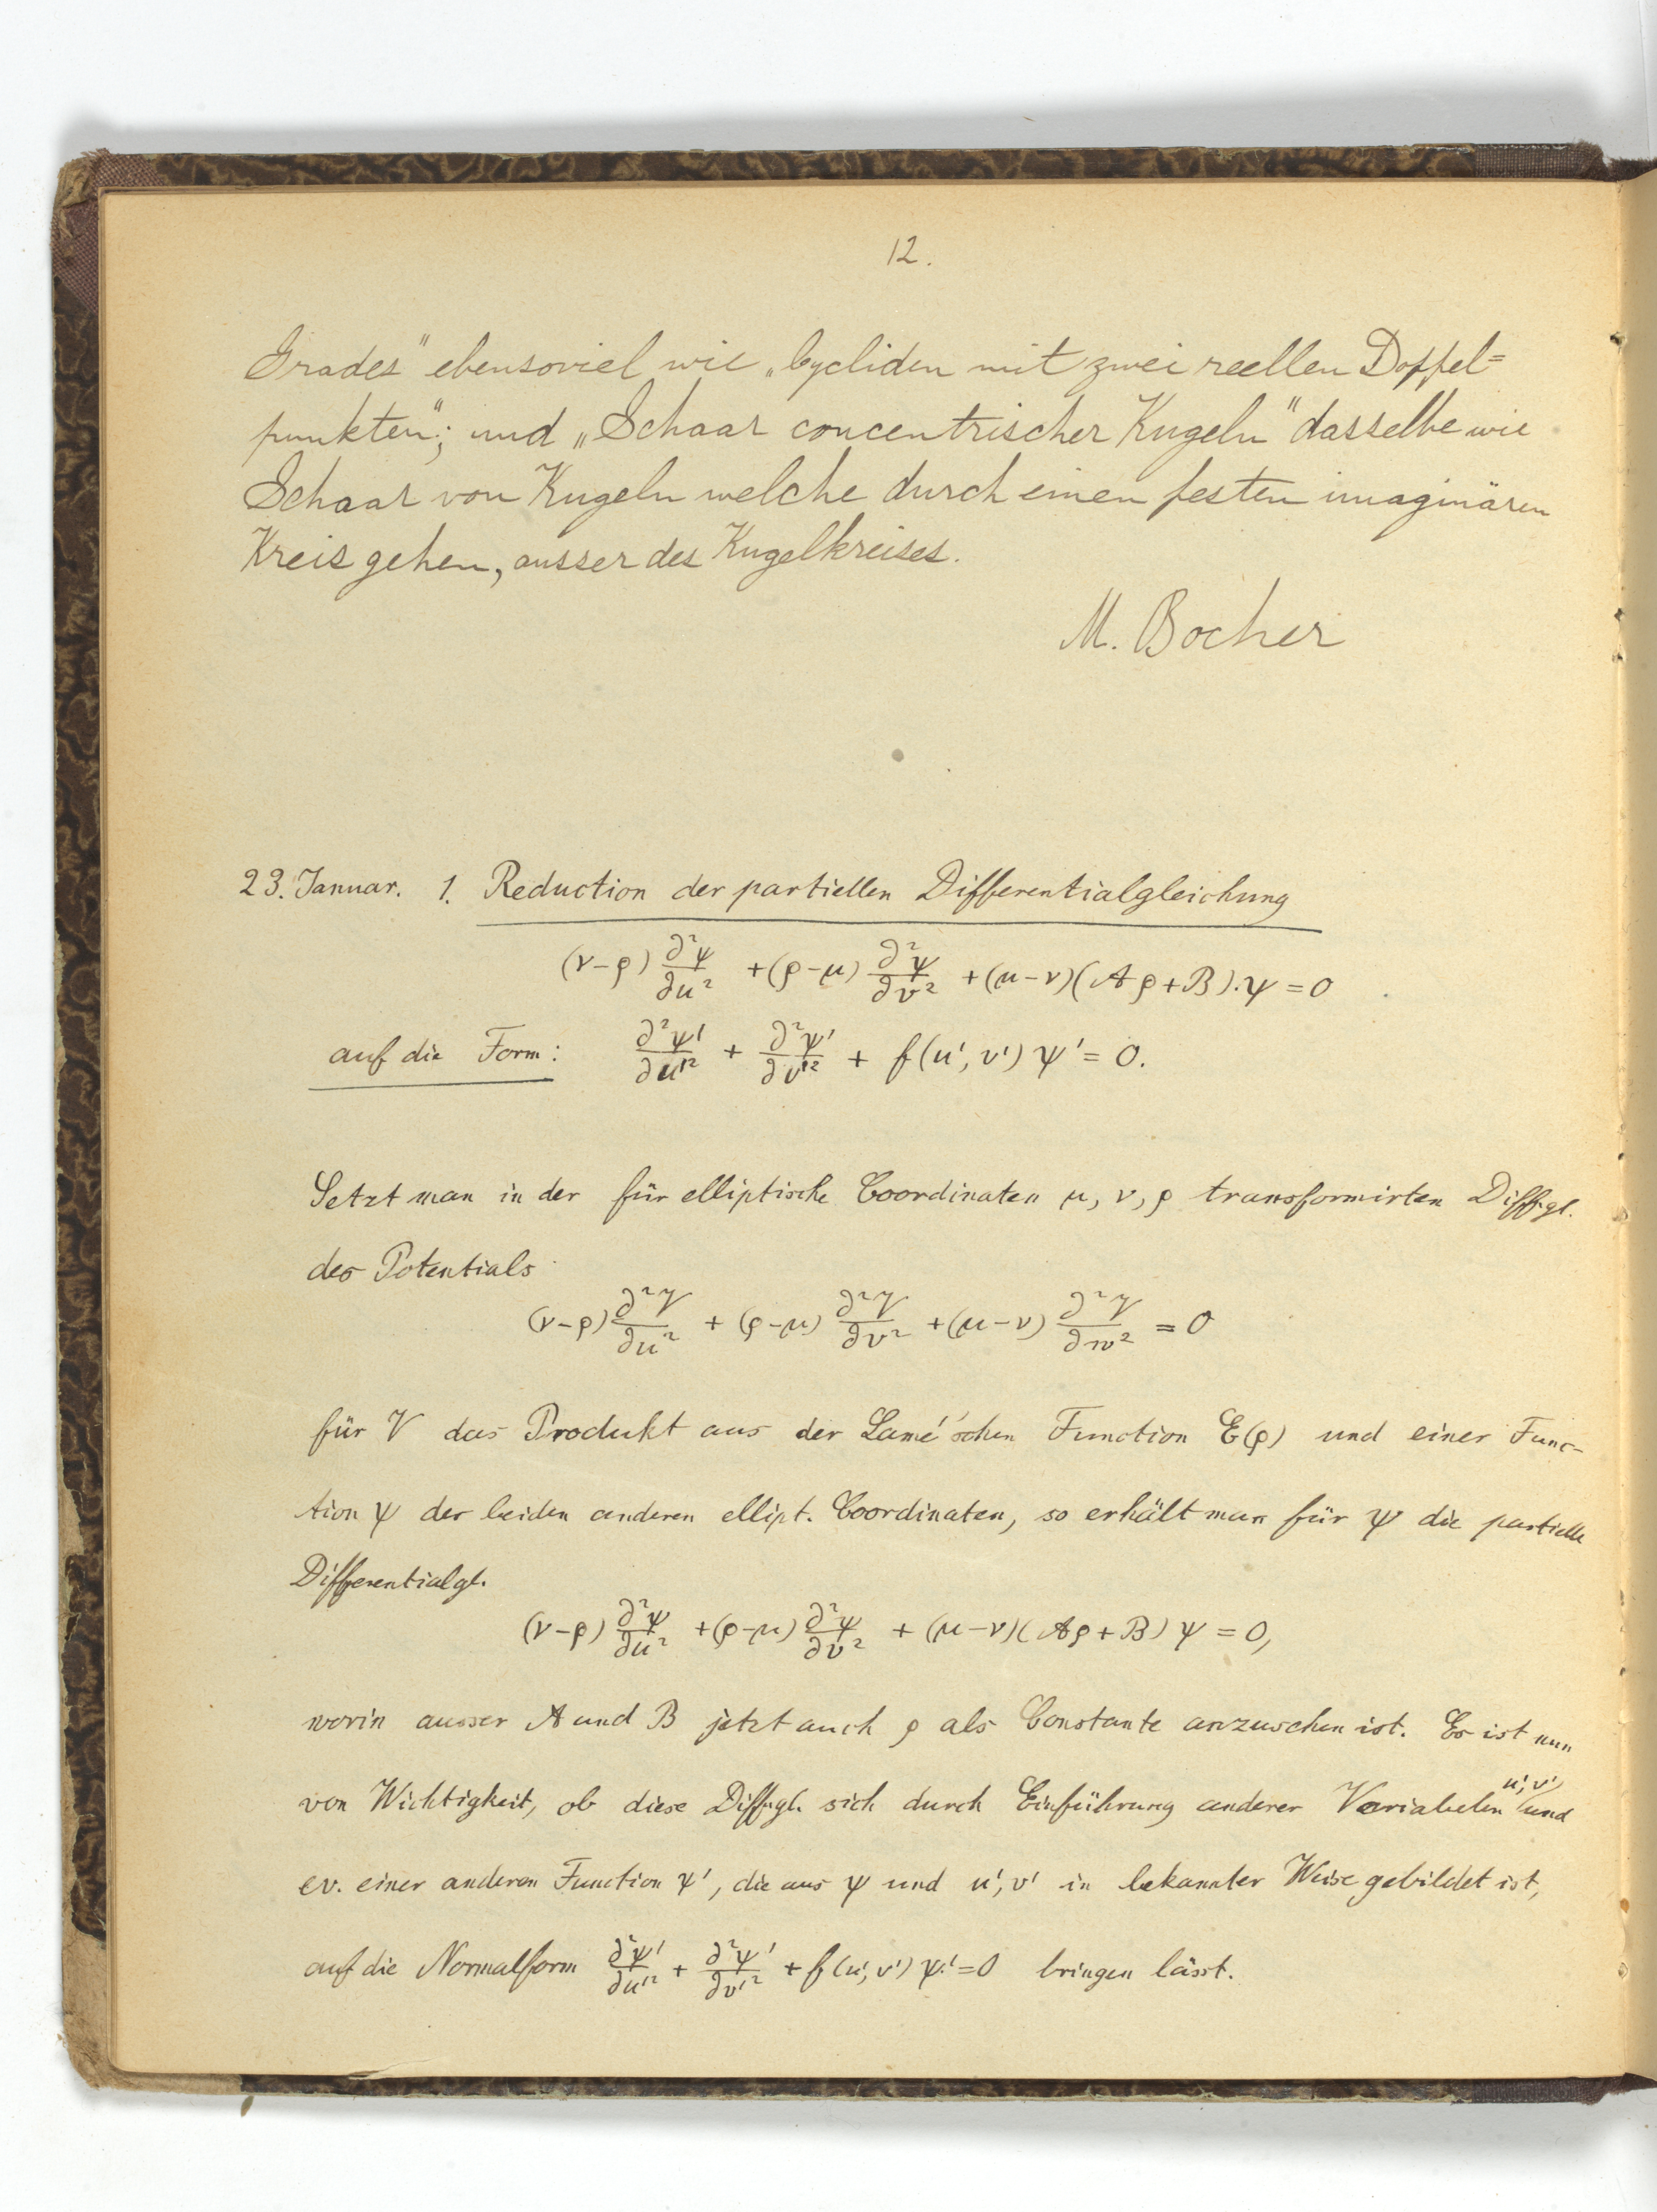 12.
Grades" ebensoviel wie „Cycliden mit zwei reellen Doppel=
punkten"; und „Schaar concentrischer Kugeln" dasselbe wie
Schaar von Kugeln welche durch einen festen imaginären
Kreis gehen, ausser des Kugelkreises.
M. Bocher
23. Januar. 1. Reduction der partiellen Differentialgleichung
(ν-ρ) ∂²ψ/∂u² + (ρ-μ) ∂²ψ/∂v² + (μ-ν)(Aρ+B).ψ = 0
auf die Form: ∂²ψ'/∂u'² + ∂²ψ'/∂v'² + f(u', v') ψ' = 0.
Setzt man in der für elliptische Coordinaten μ, ν, ρ transformirten Diffgl.
des Potentials
(ν-ρ) ∂²V/∂u² + (ρ-μ) ∂²V/∂v² + (μ-ν) ∂²V/∂w² = 0
für V das Produkt aus der Lamé'schen Function E(ρ) und einer Func-
tion ψ der beiden anderen ellipt. Coordinaten, so erhält man für ψ die partielle
Differentialgl.
(ν-ρ) ∂²ψ/∂u² + (ρ-μ) ∂²ψ/∂v² + (μ-ν)(Aρ+B) ψ = 0,
worin ausser A und B jetzt auch ρ als Constante anzusehen ist. Es ist nun
von Wichtigkeit, ob diese Diffgl. sich durch Einführung anderer Variabelen u', v' und
ev. einer anderen Function ψ', die aus ψ und u', v' in bekannter Weise gebildet ist,
auf die Normalform ∂²ψ'/∂u'² + ∂²ψ'/∂v'² + f(u', v') ψ' = 0 bringen lässt.